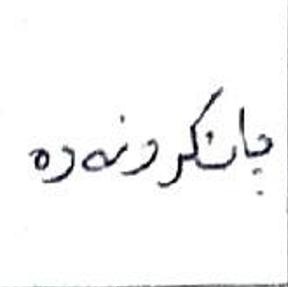 پانکردنەوە